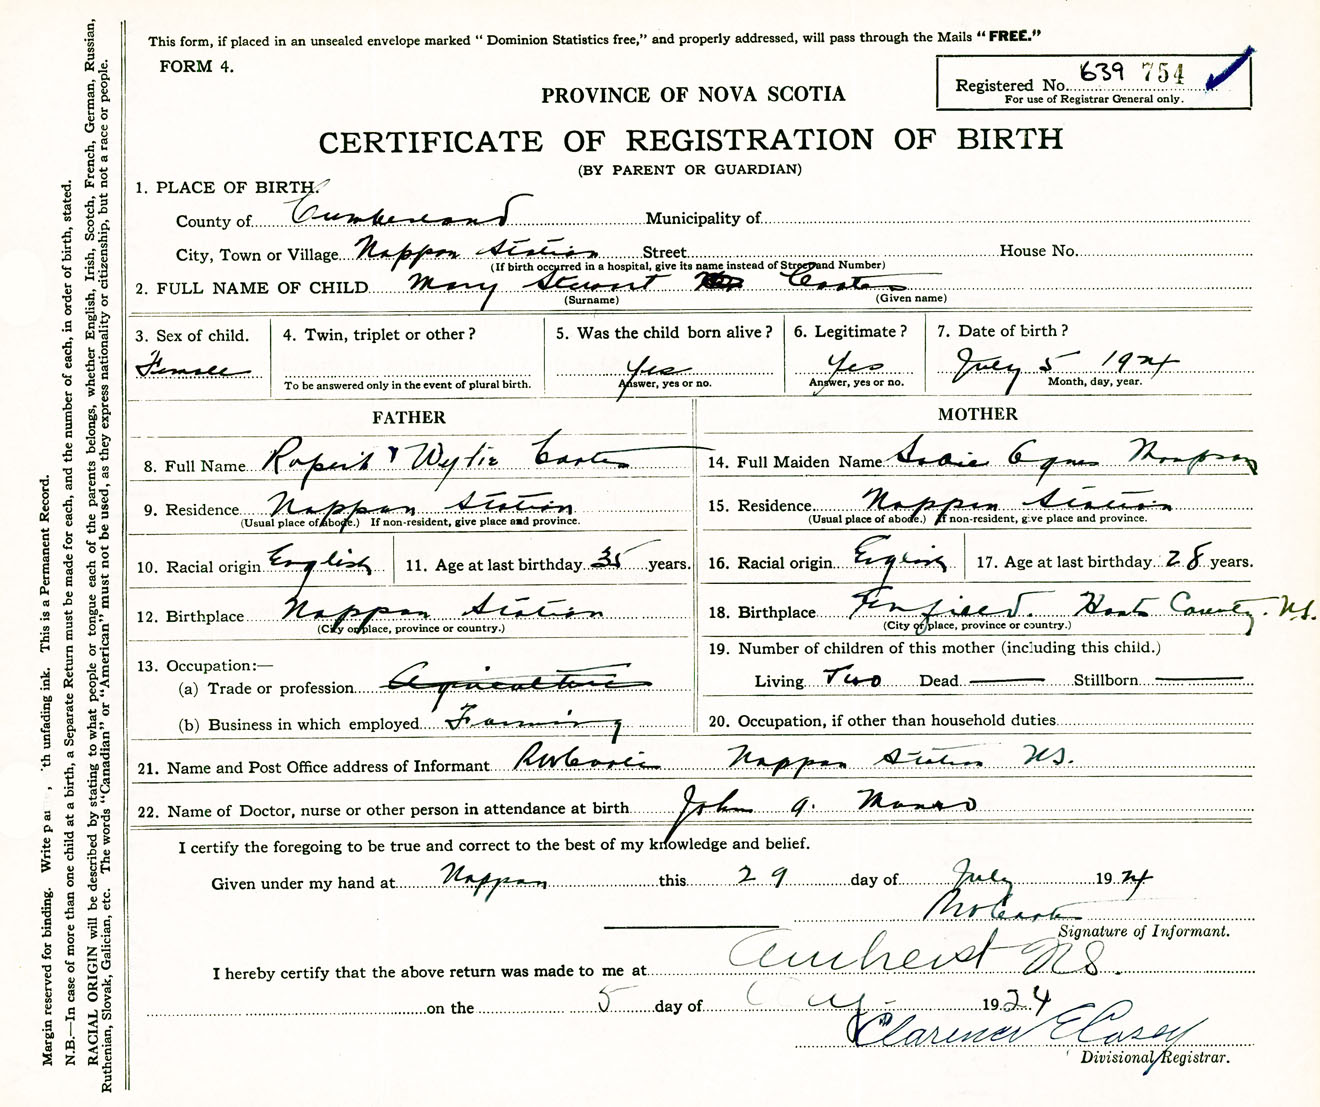 This form, if placed in an unsealed envelope marked " Dominion Statistics free," and properly addressed, will pass through the Mails "FREE."
FORM 4.
Registered No. 639 754
For use of Registrar General only.
PROVINCE OF NOVA SCOTIA
CERTIFICATE OF REGISTRATION OF BIRTH
(BY PARENT OR GUARDIAN)
1. PLACE OF BIRTH.
County of Cumberland Municipality of
City, Town or Village Nappan Station Street House No.
(If birth occurred in a hospital, give its name instead of Street and Number)
2. FULL NAME OF CHILD Mary Stewart Coates
(Surname) (Given name)
3. Sex of child. 4. Twin, triplet or other? 5. Was the child born alive? 6. Legitimate? 7. Date of birth?
Female Yes Yes July 5 1924
To be answered only in the event of plural birth. Answer, yes or no. Answer, yes or no. Month, day, year.
FATHER MOTHER
8. Full Name Rupert Wylie Coates 14. Full Maiden Name Sadie Agnes Thompson
9. Residence Nappan Station 15. Residence Nappan Station
(Usual place of abode.) If non-resident, give place and province. (Usual place of abode.) If non-resident, give place and province.
10. Racial origin English 11. Age at last birthday 35 years. 16. Racial origin English 17. Age at last birthday 28 years.
12. Birthplace Nappan Station 18. Birthplace Hants County. N.S.
(City or place, province or country.) (City or place, province or country.)
13. Occupation:— 19. Number of children of this mother (including this child.)
(a) Trade or profession Agriculture Living Two Dead — Stillborn —
(b) Business in which employed Farming 20. Occupation, if other than household duties
21. Name and Post Office address of Informant Nappan Station NS.
22. Name of Doctor, nurse or other person in attendance at birth John A. Munro
I certify the foregoing to be true and correct to the best of my knowledge and belief.
Given under my hand at Nappan this 29 day of July 1924
Signature of Informant.
I hereby certify that the above return was made to me at Amherst NS.
on the 5 day of Aug. 1924
Clarence E Casey
Divisional Registrar.
Margin reserved for binding. Write th unfading ink. This is a Permanent Record.
N.B.—In case of more than one child at a birth, a Separate Return must be made for each, and the number of each, in order of birth, stated.
RACIAL ORIGIN will be described by stating to what people or tongue each of the parents belongs, whether English, Irish, Scotch, French, German, Russian,
Ruthenian, Slovak, Galician, etc. The words "Canadian" or "American" must not be used, as they express nationality or citizenship, but not a race or people.